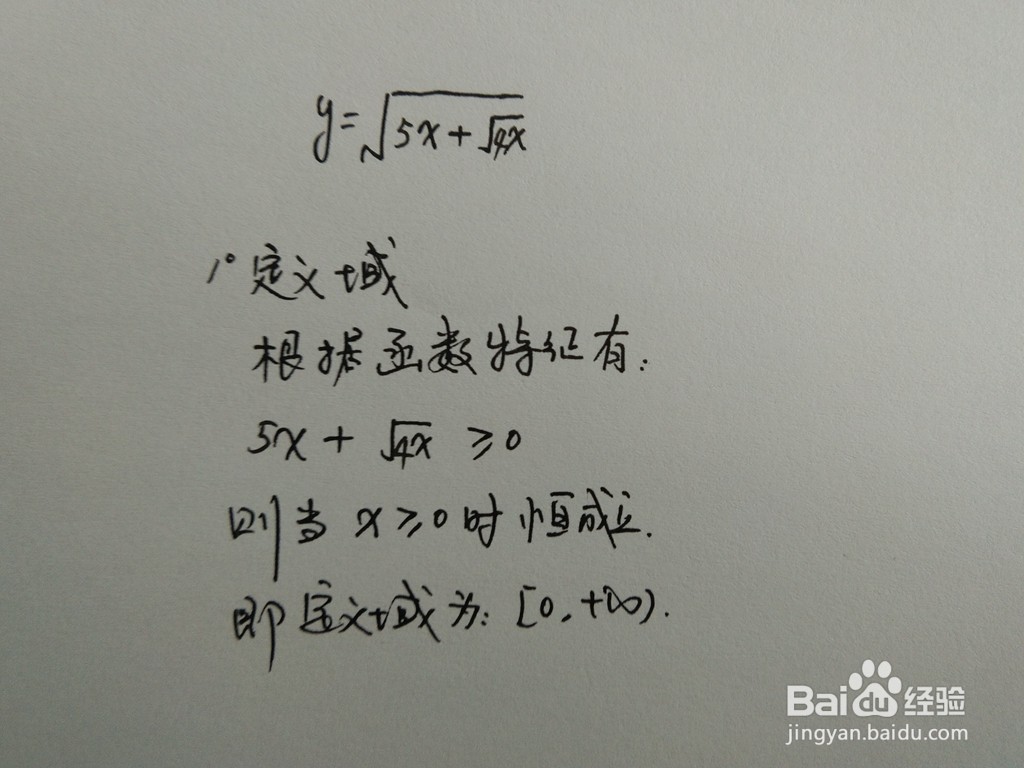 y=√(5x+√(4x))
1° 定义域
根据函数特征有:
5x + √(4x) ≥0
则当 x≥0时恒成立.
即定义域为: [0,+∞).
Bai du 经验
jingyan.baidu.com